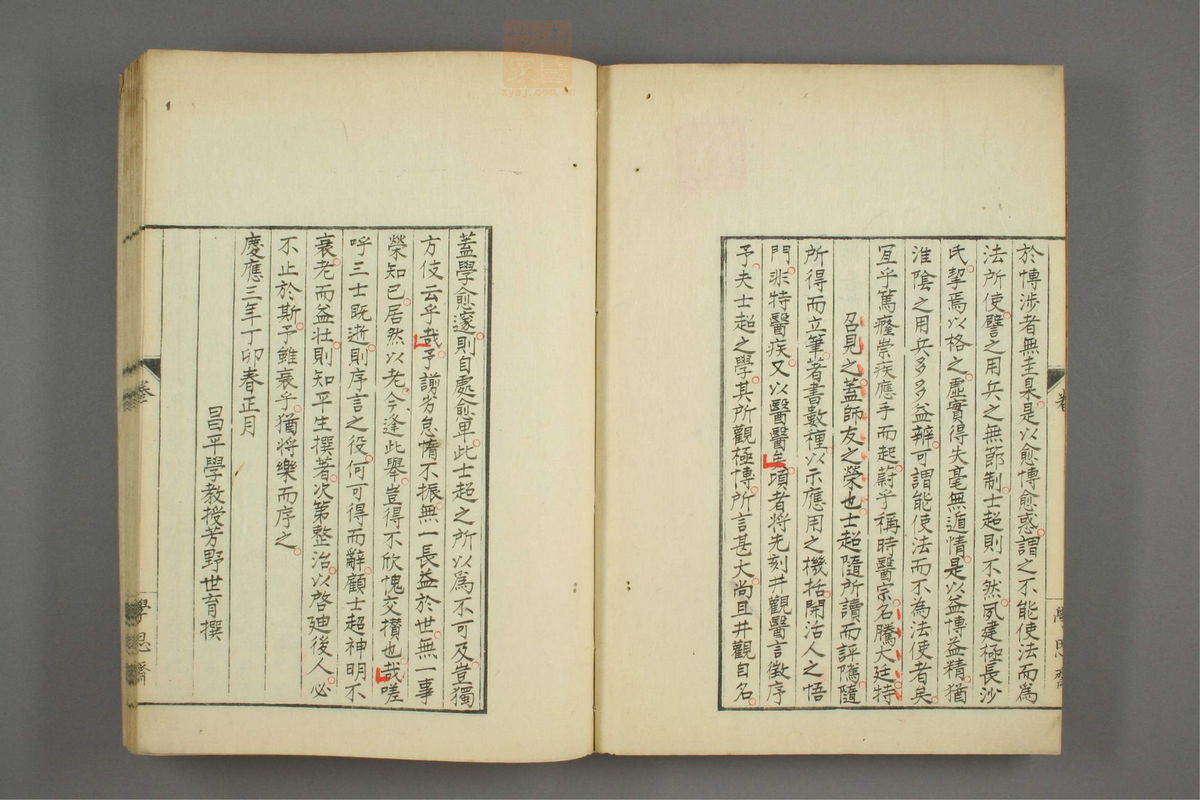 於博涉者無圭臬是以愈博愈惑謂之不能使法而為
法所使譬之用兵之無節制士超則不然夙建極長沙
氏挈焉以格之虛實得失毫無遁情是以益博益精猶
淮陰之用兵多多益辨可謂能使法而不為法使者矣
宜乎篤癃祟疾應手而起蔚乎稱時醫宗名騰大廷特
召見之蓋師友之榮也士超隨所讀而評騭隨
所得而立筆著書數種以示應用之機括閑活人之悟
門非特醫疾又以醫醫矣頃者將先刻井觀醫言徵序
予夫士超之學其所觀極博所言甚大尚且井觀自名
蓋學愈邃則自處愈卑此士超之所以為不可及豈獨
方伎云乎哉予謭劣怠惰不振無一長益於世無一事
榮知己居然以老今逢此舉豈得不欣愧交攢也哉嗟
呼三士既逝則序言之役何可得而辭顧士超神明不
衰老而益壯則知平生撰著次第整治以啓廸後人必
不止於斯予雖衰乎猶將樂而序之
慶應三年丁卯春正月
昌平學教授芳野世育撰
卷
學思齋
卷
學思齋
zysj.com.cn